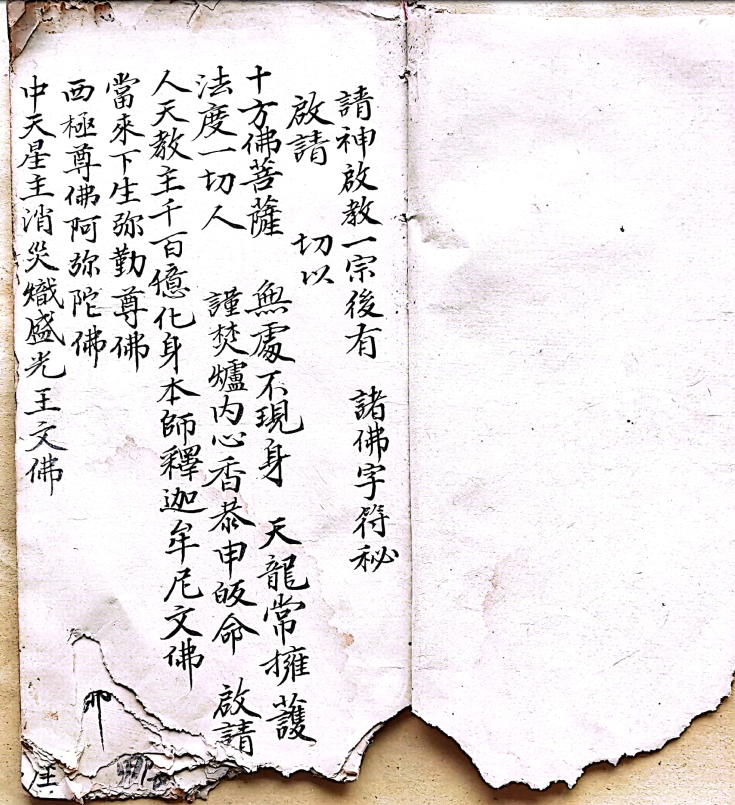 請神啟教一宗後有 諸佛字符秘
啟請 切以
十方佛菩薩 無處不現身 天龍常擁護
法度一切人 謹焚爐內心香恭申皈命 啟請
人天教主千百億化身本師釋迦牟尼文佛
當來下生弥勤尊佛
西極尊佛阿弥陀佛
中天星主消災熾盛光王文佛